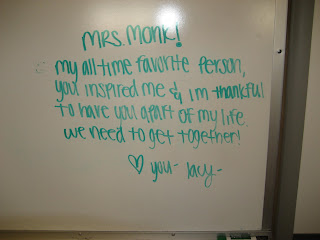 MRS. MONK!
my all time favorite person,
you inspired me & im thankful
to have you apart of my life.
we need to get together!
♡ you- Jacy-